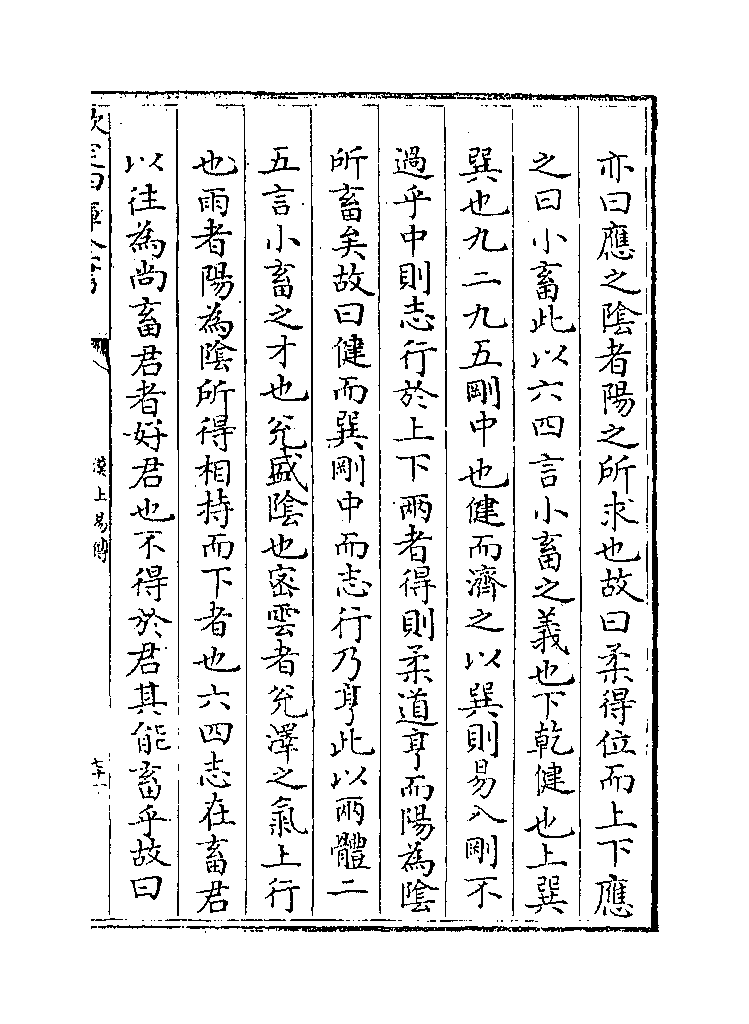 亦曰應之陰者陽之所求也故曰柔得位而上下應
之曰小畜此以六四言小畜之義也下乾健也上巽
巽也九二九五剛中也健而濟之以巽則易入剛不
過乎中則志行於上下兩者得則柔道亨而陽為陰
所畜矣故曰健而巽剛中而志行乃亨此以兩體二
五言小畜之才也兊盛陰也宻雲者兊澤之氣上行
也雨者陽為陰所得相持而下者也六四志在畜君
以往為尚畜君者好君也不得於君其能畜乎故曰
欽定四庫全書
漢上易傳